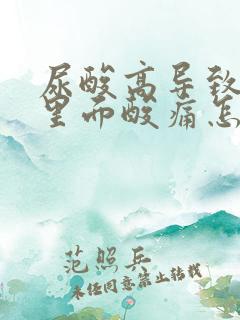 尿酸高导致
里面酸痛怎
范照兵
未经同意禁止转载